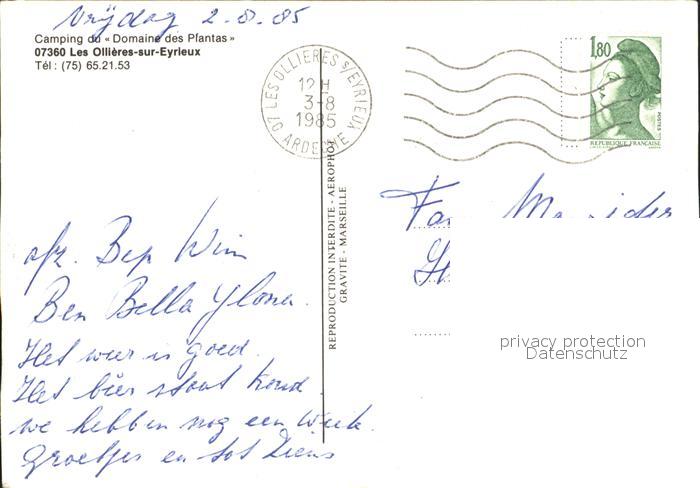 Vrijdag 2-8-85
Camping du « Domaine des Plantas »
07360 Les Ollières-sur-Eyrieux
Tél : (75) 65.21.53
07 LES OLLIERES S/EYRIEUX
12 H
3-8
1985
ARDECHE
1,80
POSTES
REPUBLIQUE FRANÇAISE
REPRODUCTION INTERDITE - AEROPHOT
GRAVITE - MARSEILLE
Fa
afz. Bep Wim
Ben Bella Ylona.
Het weer is goed.
Het bier staat koud.
we hebben nog een week.
Groetjes en tot ziens
privacy protection
Datenschutz